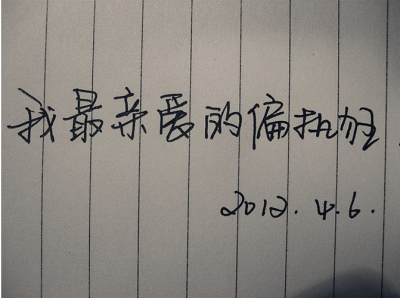 我最亲爱的偏执狂
2012.4.6.